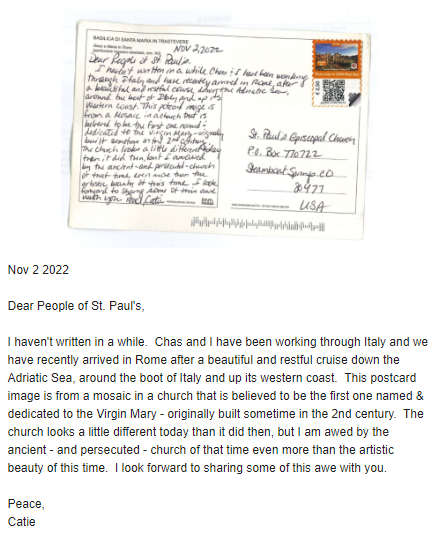 BASILICA DI SANTA MARIA IN TRASTEVERE
NOV 2, 2022
Dear People of St. Paul's,
I haven't written in a while. Chas & I have been working
through Italy and have recently arrived in Rome, after
a beautiful and restful cruise down the Adriatic Sea,
around the boot of Italy and up its
western coast. This postcard image is
from a mosaic in a church that is
believed to be the first one named &
dedicated to the Virgin Mary - originally
built sometime in the 2nd century.
The church looks a little different today
than it did then, but I am awed
by the ancient - and persecuted - church
of that time even more than the
artistic beauty of this time. I look
forward to sharing some of this awe
with you. Peace, Catie
St. Paul's Episcopal Church
P.O. Box 770722
Steamboat Springs, CO
80477
USA
Nov 2 2022
Dear People of St. Paul's,
I haven't written in a while.  Chas and I have been working through Italy and we
have recently arrived in Rome after a beautiful and restful cruise down the
Adriatic Sea, around the boot of Italy and up its western coast.  This postcard
image is from a mosaic in a church that is believed to be the first one named &
dedicated to the Virgin Mary - originally built sometime in the 2nd century.  The
church looks a little different today than it did then, but I am awed by the
ancient - and persecuted - church of that time even more than the artistic
beauty of this time.  I look forward to sharing some of this awe with you.
Peace,
Catie